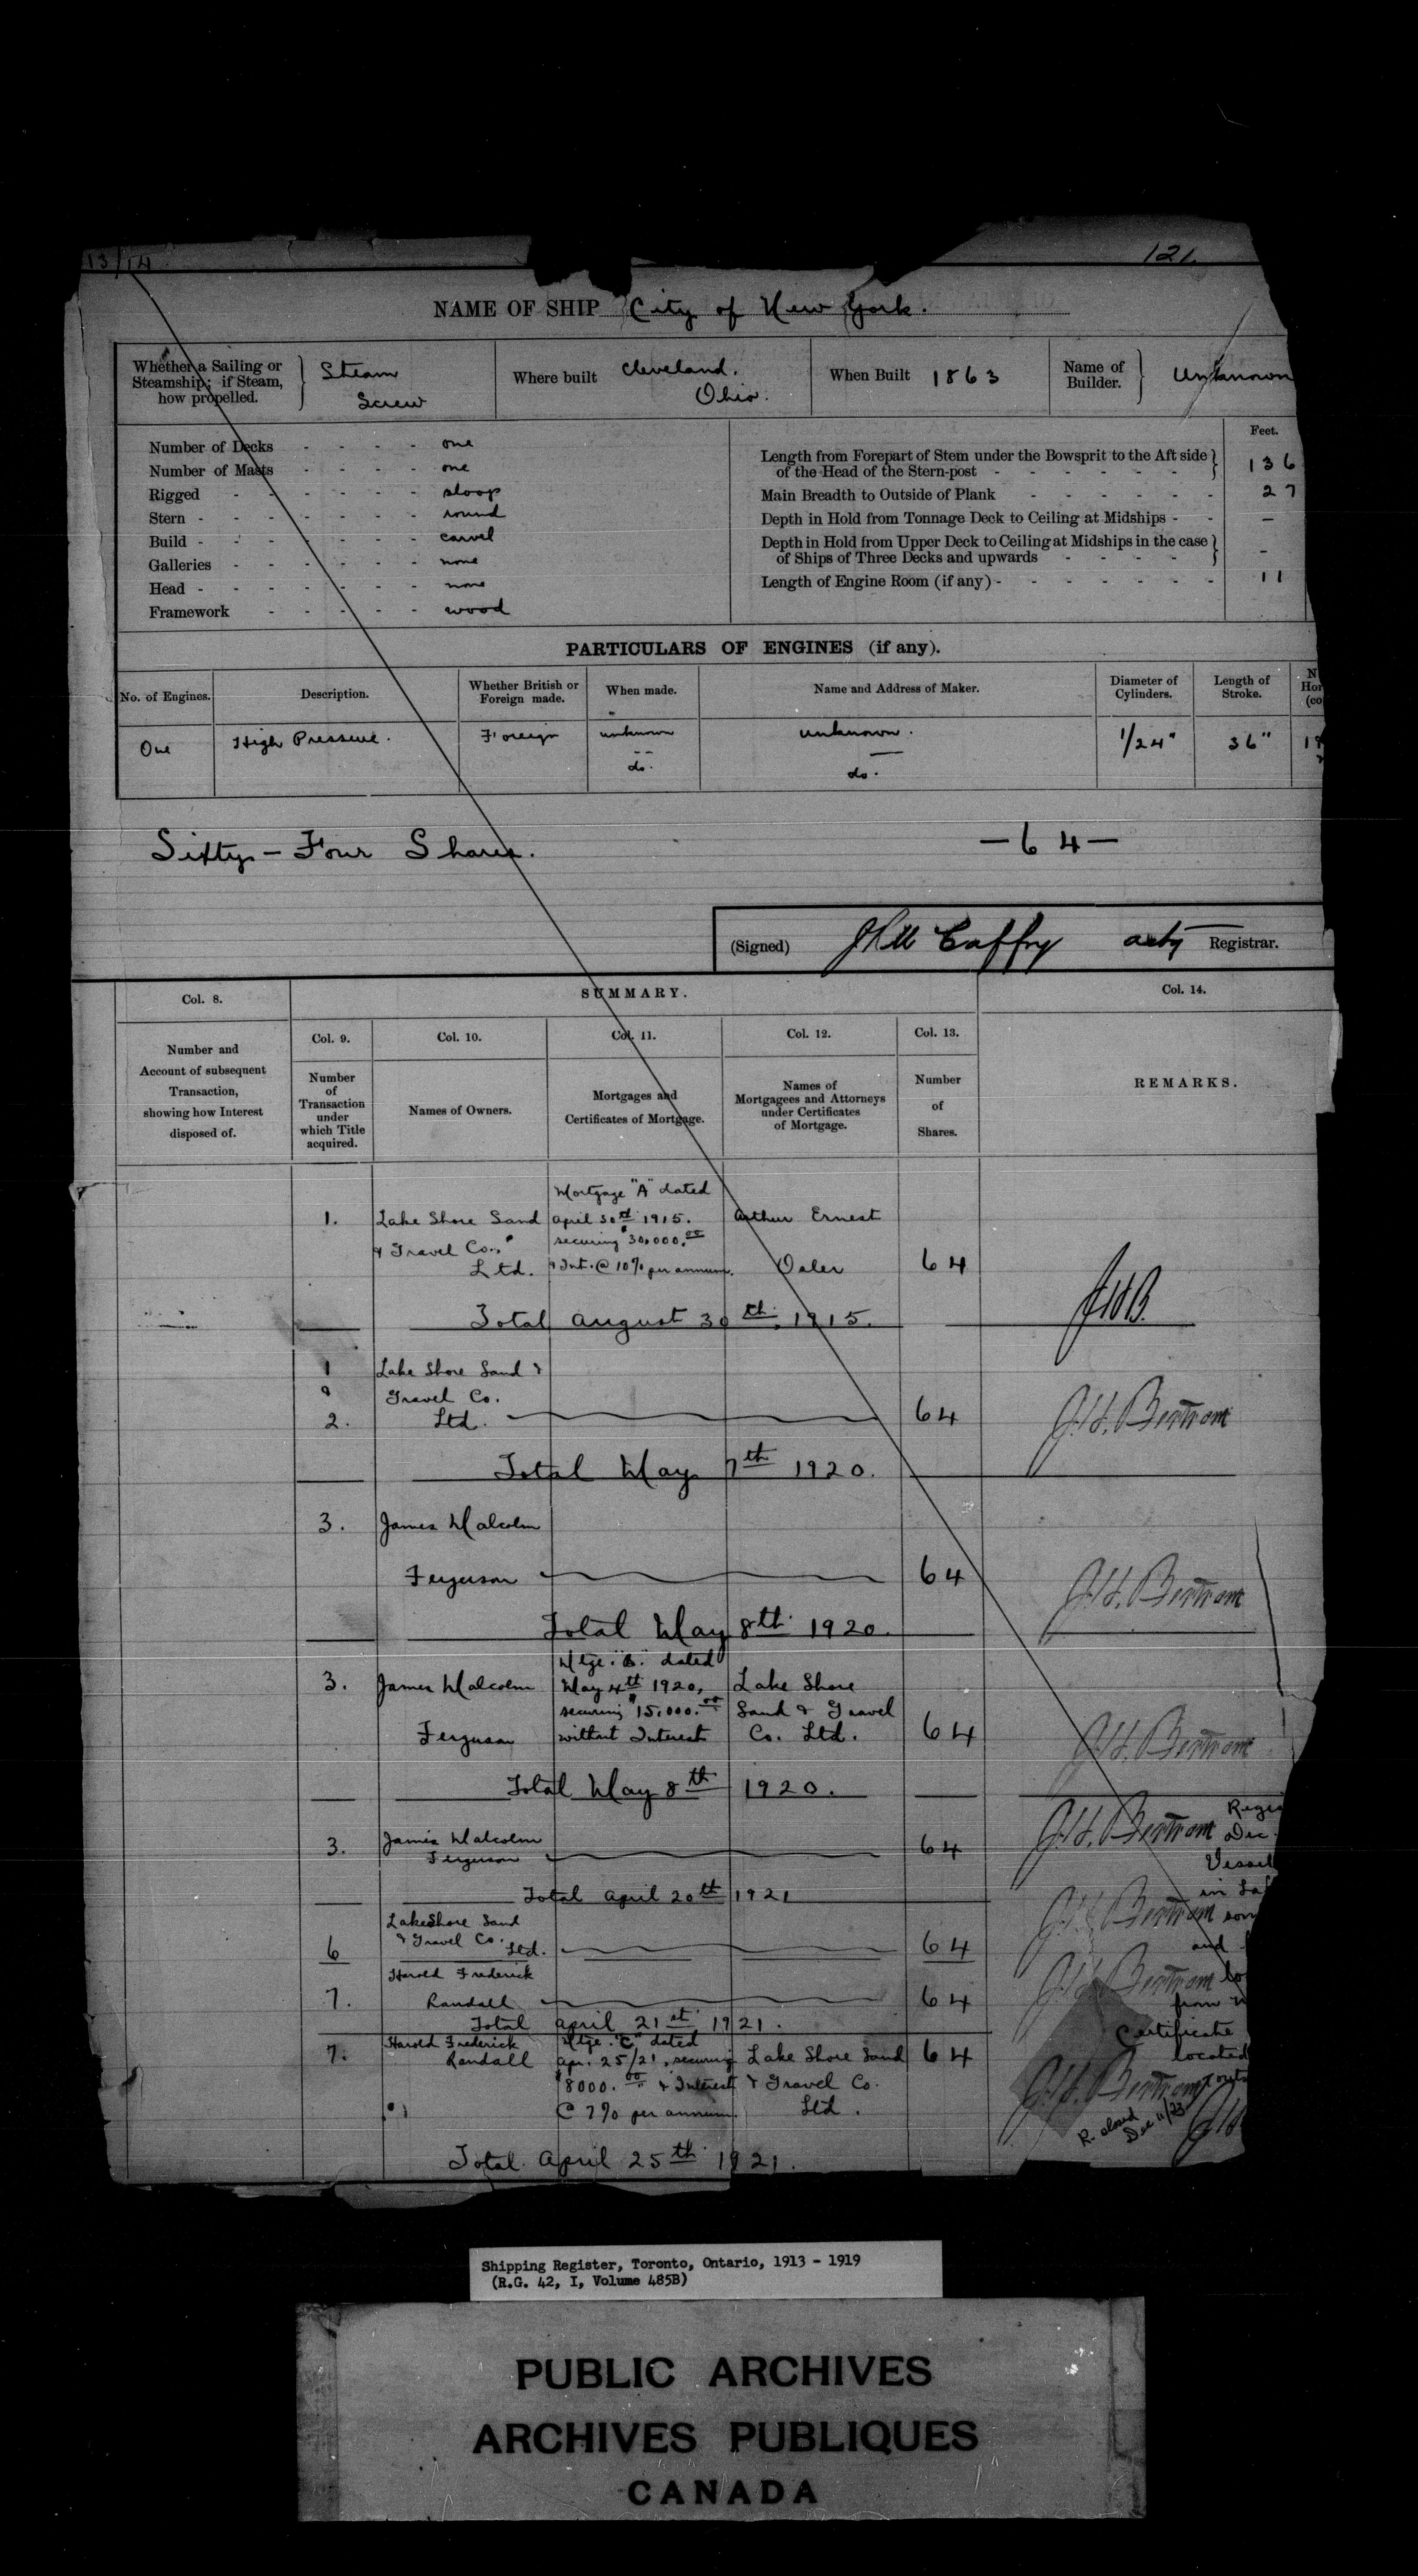 13/14
121.
NAME OF SHIP City of New York.
Whether a Sailing or Steamship; if Steam, how propelled. Steam Screw
Where built Cleveland. Ohio.
When Built 1863
Name of Builder. Unknown
Feet.
Number of Decks - - - - one
Number of Masts - - - - one
Rigged - - - - - - sloop
Stern - - - - - - - round
Build - - - - - - - carvel
Galleries - - - - - - none
Head - - - - - - - none
Framework - - - - - wood
Length from Forepart of Stem under the Bowsprit to the Aft side
of the Head of the Stern-post - - - - - - 136
Main Breadth to Outside of Plank - - - - - - 27
Depth in Hold from Tonnage Deck to Ceiling at Midships - - –
Depth in Hold from Upper Deck to Ceiling at Midships in the case
of Ships of Three Decks and upwards - - - - –
Length of Engine Room (if any) - - - - - - - 11
PARTICULARS OF ENGINES (if any).
No. of Engines. Description. Whether British or Foreign made. When made. Name and Address of Maker. Diameter of Cylinders. Length of Stroke.
One High Pressure. Foreign unknown unknown. 1/24" 36"
do. do.
Sixty-Four Shares. —64—
(Signed) Caffry actg Registrar.
Col. 8. SUMMARY. Col. 14.
Col. 9. Col. 10. Col. 11. Col. 12. Col. 13.
Number and
Account of subsequent
Transaction,
showing how Interest
disposed of.
Number
of
Transaction
under
which Title
acquired.
Names of Owners.
Mortgages and
Certificates of Mortgage.
Names of
Mortgagees and Attorneys
under Certificates
of Mortgage.
Number
of
Shares.
REMARKS.
Mortgage "A" dated
1. Lake Shore Sand April 30th 1915. Arthur Ernest
& Gravel Co., securing $30,000.00
Ltd. & Int. @ 10% per annum. Osler 64
JHB.
Total August 30th, 1915.
1 Lake Shore Sand &
& Gravel Co.
2. Ltd. 64 J.H. Bertram
Total May 7th 1920.
3. James Malcolm
Ferguson 64 J.H. Bertram
Total May 8th 1920.
Mtge. "B." dated
3. James Malcolm May 4th 1920, Lake Shore
securing $15,000.00 Sand & Gravel
Ferguson without Interest Co. Ltd. 64 J.H. Bertram
Total May 8th 1920.
3. James Malcolm
Ferguson 64 J.H. Bertram
Total April 20th 1921
Lake Shore Sand
& Gravel Co.
6 Ltd. 64 J.H. Bertram
Harold Frederick
7. Randall 64 J.H. Bertram
Total April 21st 1921.
Harold Frederick Mtge. "C" dated
7. Randall Apr. 25/21, securing Lake Shore Sand 64
$8000.00 & Interest & Gravel Co. J.H. Bertram
@ 7% per annum. Ltd.
Total April 25th 1921.
Dec.
Vessel
in
and
from
Certificate
located
R. closed
Dec 11/23
Shipping Register, Toronto, Ontario, 1913 - 1919
(R.G. 42, I, Volume 485B)
PUBLIC ARCHIVES
ARCHIVES PUBLIQUES
CANADA